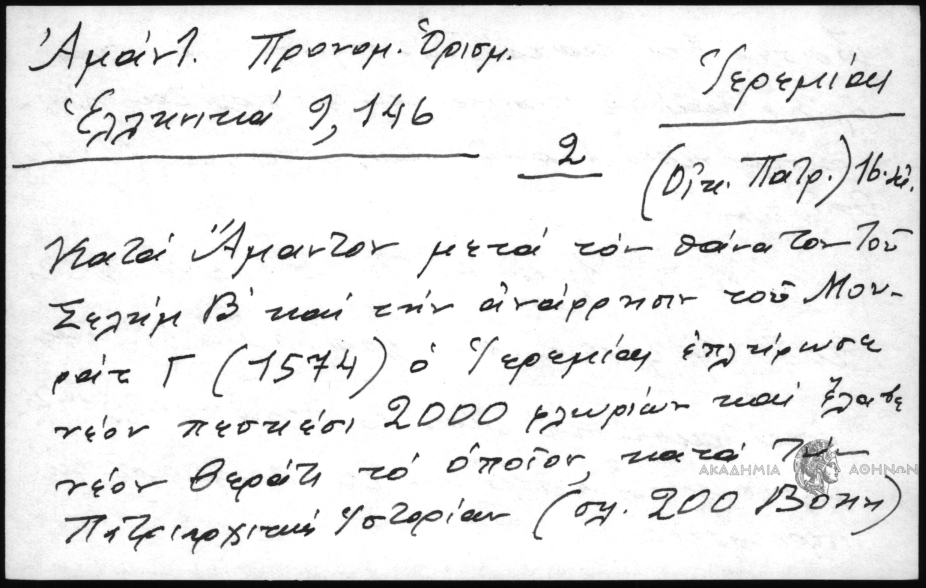 Ἀμάντ. Προνομ. Ὁρισμ.
Ἑλληνικά 9, 146
Ἱερεμίας
2
(Οἰκ. Πατρ.) 16. αἰ.
Κατά Ἄμαντον μετά τόν θάνατον τοῦ
Σελήμ Β' καί τήν ἀνάρρησιν τοῦ Μου-
ράτ Γ (1574) ὁ Ἱερεμίας ἐπλήρωσε
νέον πεσκέσι 2000 φλωρίων καί ἔλαβε
νέον βεράτι τό ὁποῖον, κατά τήν
Πατριαρχικήν Ἱστορίαν (σελ. 200 Βόνης)
ΑΚΑΔΗΜΙΑ ΑΘΗΝΩΝ